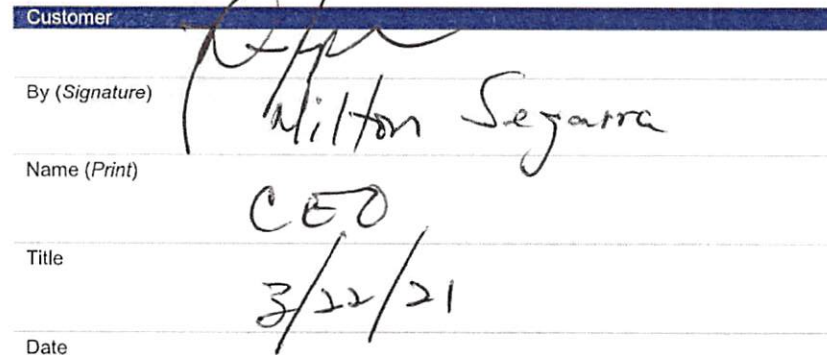 Customer
By (Signature)
Milton Segarra
Name (Print)
CEO
Title
3/22/21
Date